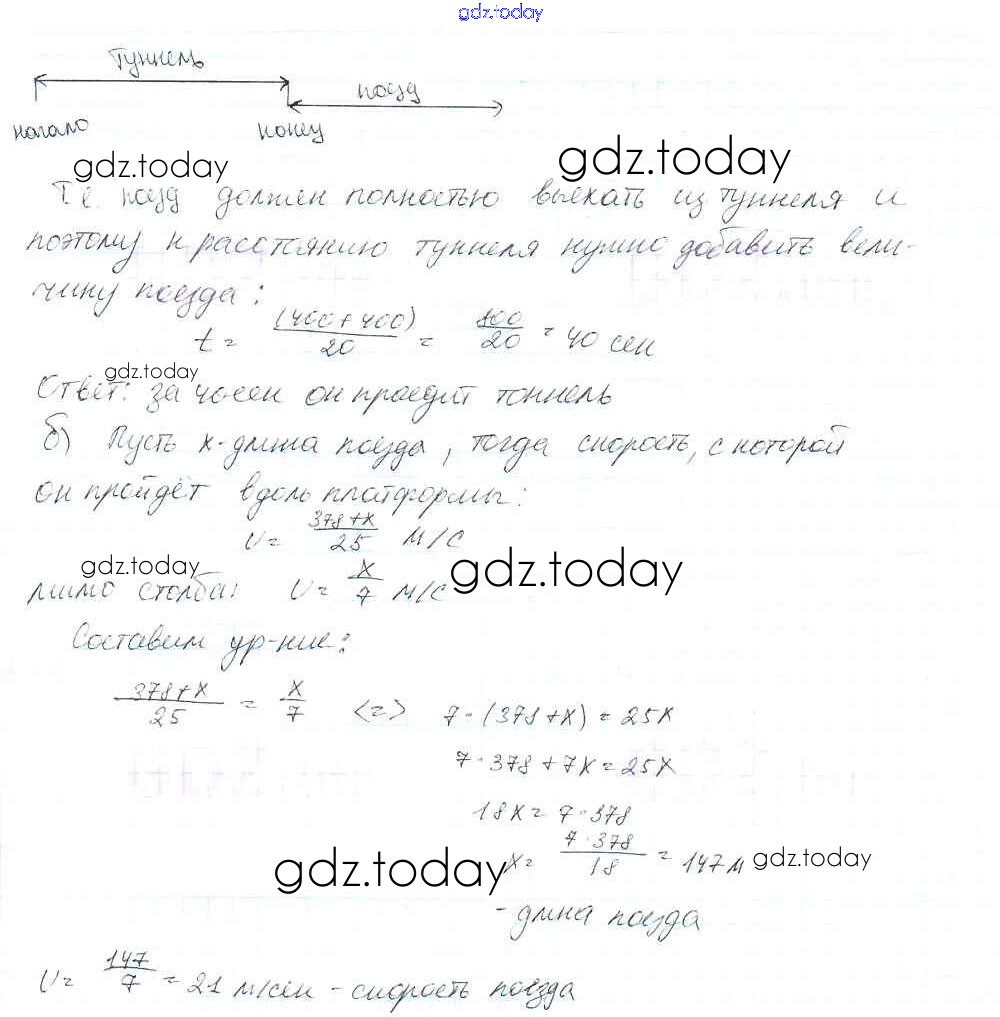 gdz.today
туннель
поезд
начало конец
gdz.today gdz.today
Т.е. поезд должен полностью выехать из туннеля и
поэтому к расстоянию туннеля нужно добавить вели-
чину поезда:
t = (400+400)/20 = 800/20 = 40 сек
gdz.today
Ответ: за 40 сек он проедит тоннель
б) Пусть x-длина поезда, тогда скорость, с которой
он пройдёт вдоль платформы:
U = (378+x)/25 м/с
gdz.today gdz.today
мимо столба: U = x/7 м/с
Составим ур-ние:
(378+x)/25 = x/7 <=> 7·(378+x) = 25x
7·378+7x=25x
18x = 7·378
gdz.today x = (7·378)/18 = 147м gdz.today
- длина поезда
U = 147/7 = 21 м/сек - скорость поезда